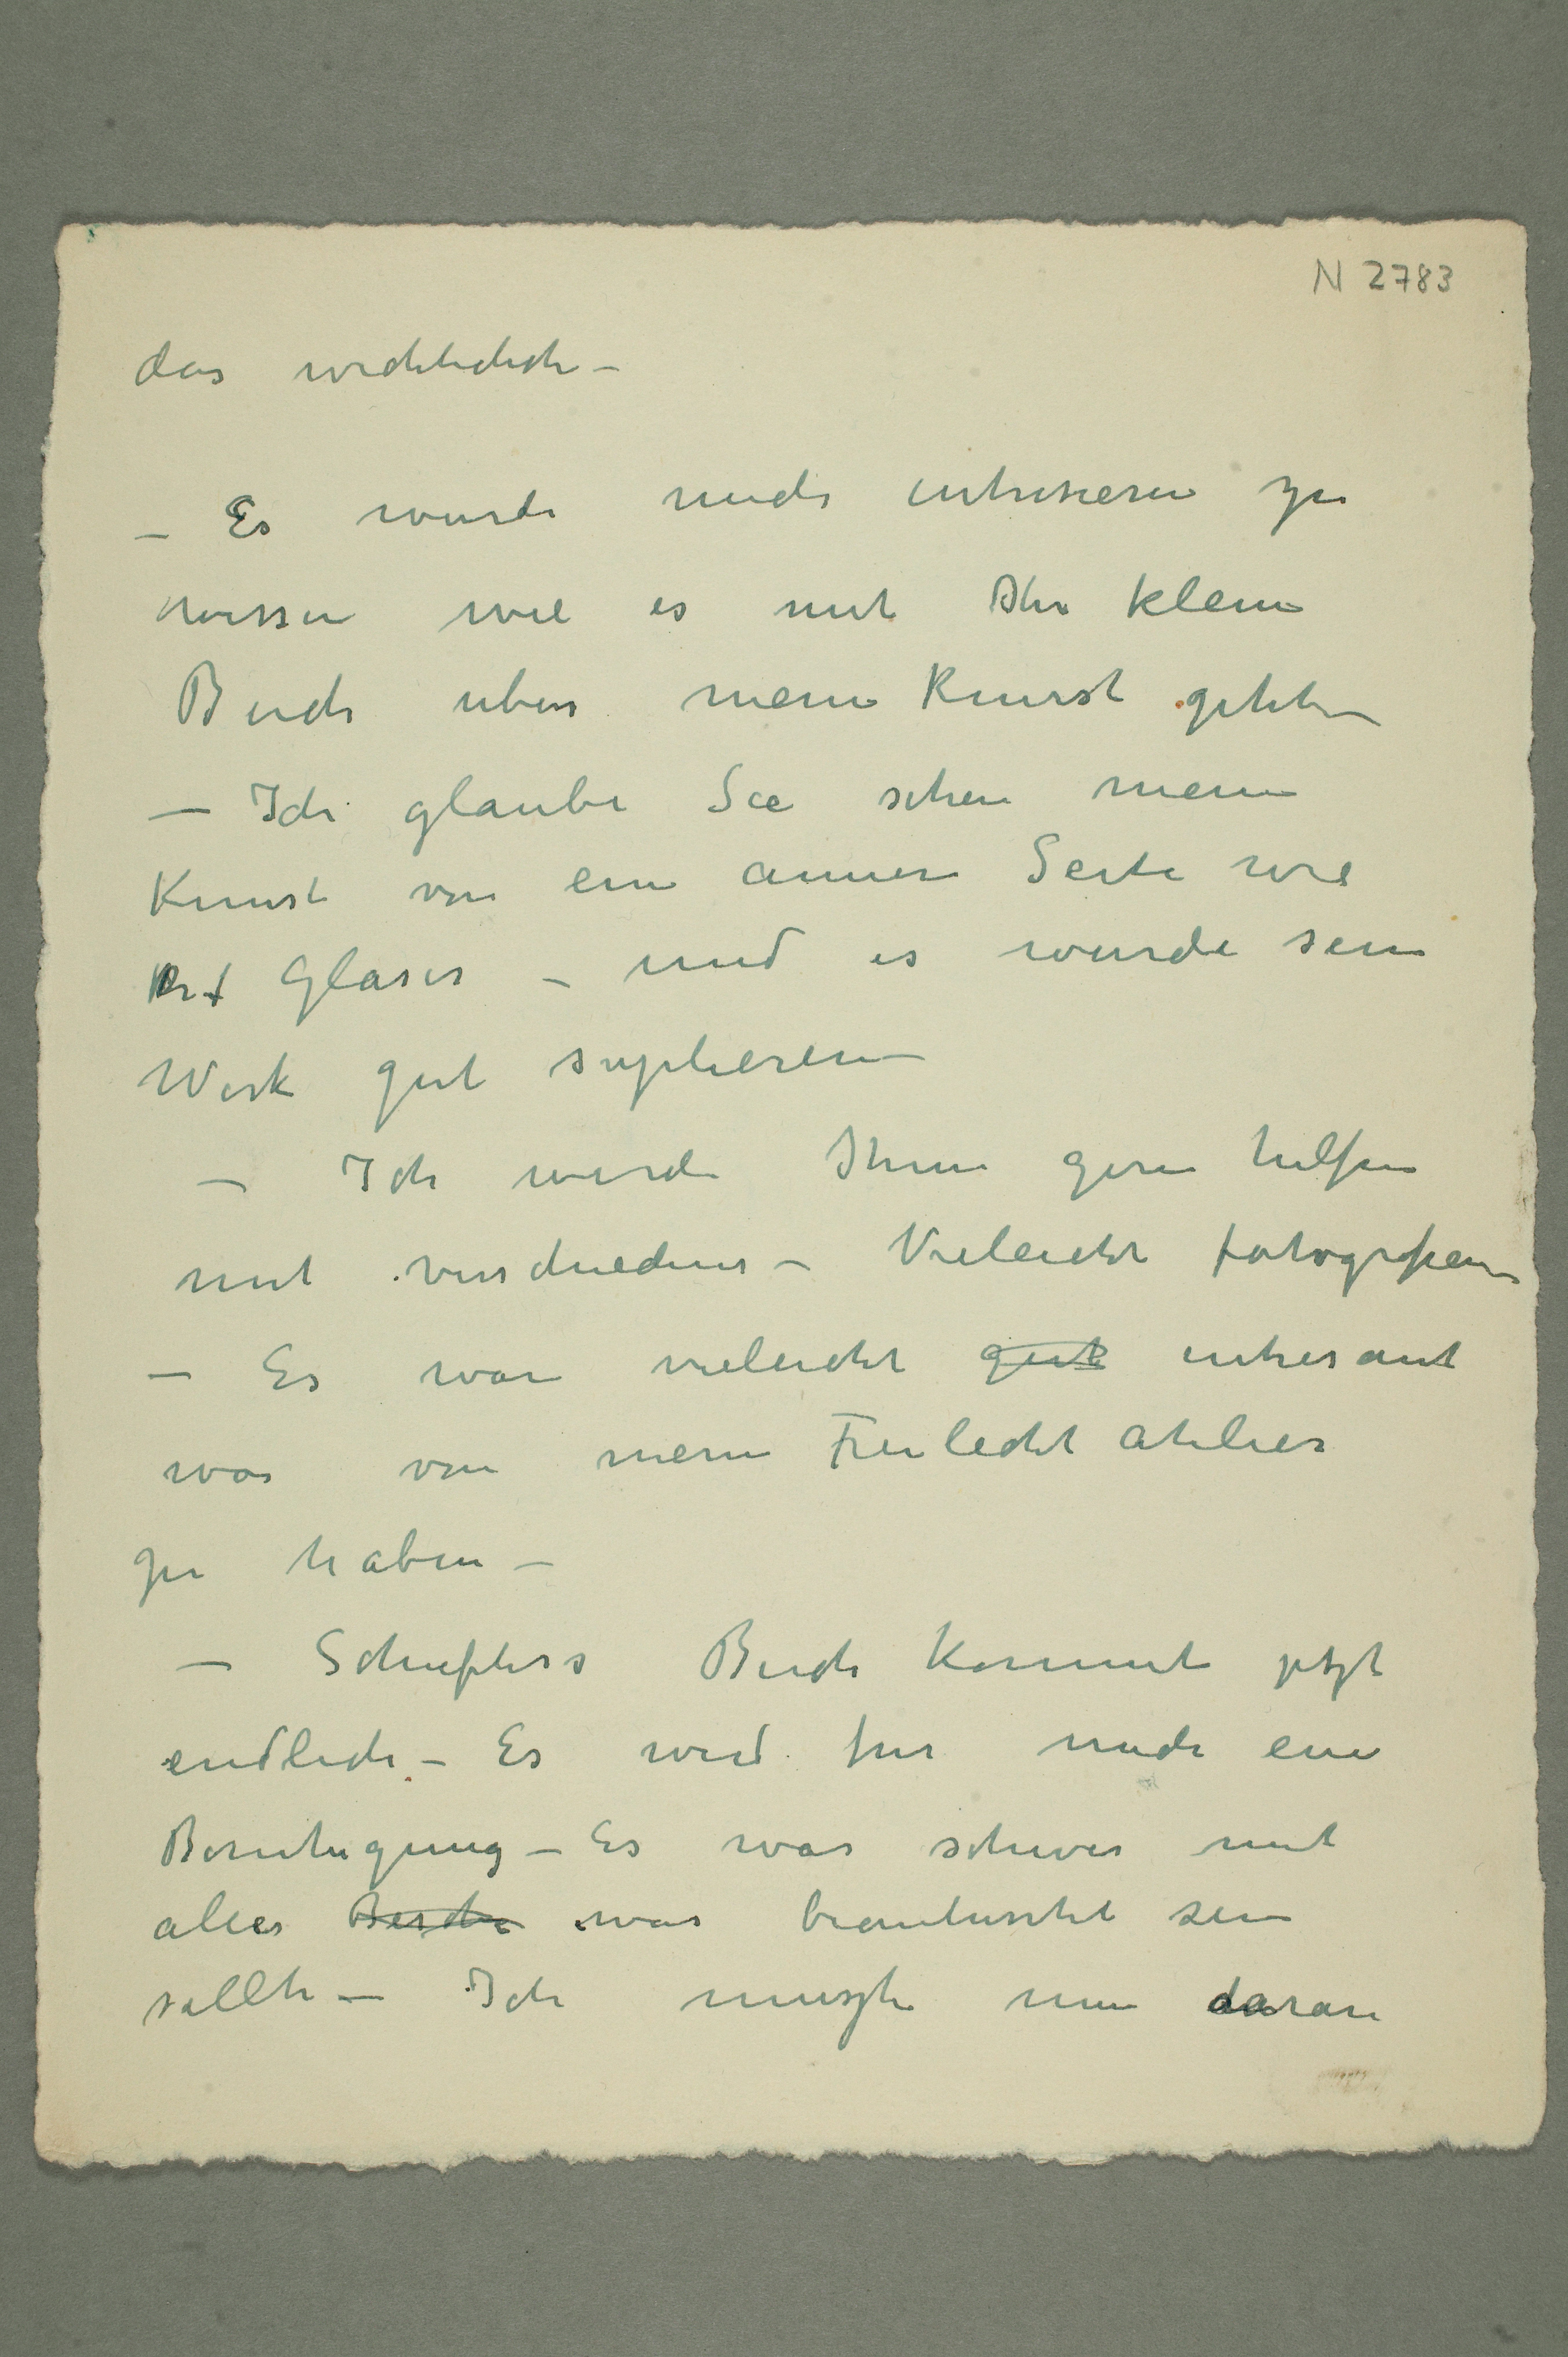 N 2783
das wichtichste –
– Es wurde mich intresieren zu
wissen wie es mit Ihr kleine
Buch uber meine Kunst gehts –
– Ich glaube Sie sehen meine
Kunst von eine anner Seite wie
Glaser – und es wurde sein
Werk gut suplieren –
– Ich werde Ihnen gern helfen
mit verschiednes – Vieleicht fotografien
– Es war vieleicht gut intresant
was von meine Freilicht atelier
zu haben –
– Schieflers Buch kommt jetzt
endlich – Es wird fur mich eine
Beruhigung – Es war schwer mit
alles was beantwortet sein
sollte – Ich muszte nun daran